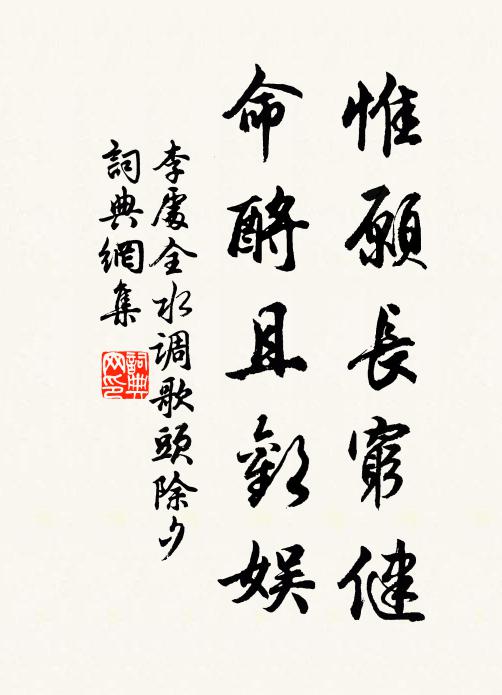 惟願長窮健
命酹且歡娛
李處全水调歌頭除夕
詞典網集
詞典网印